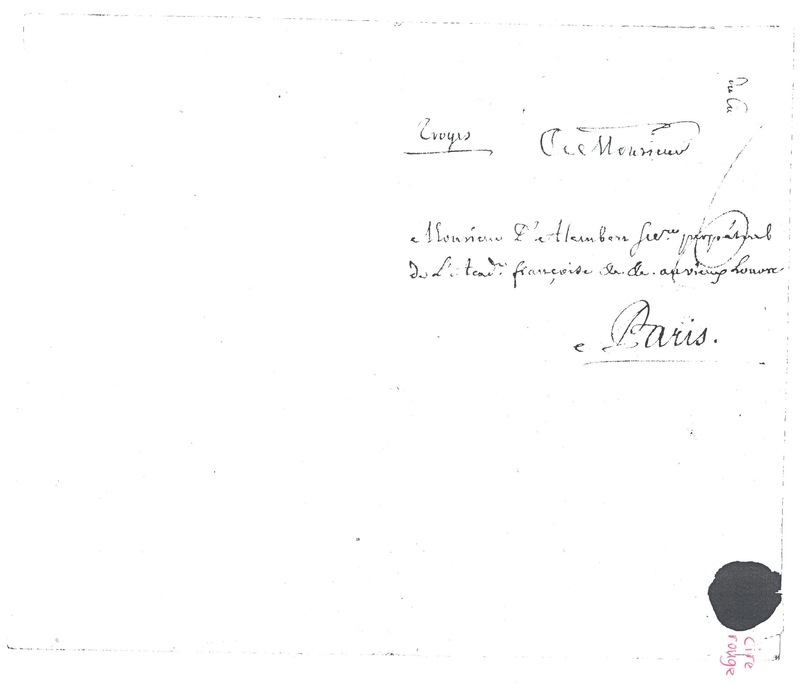 Troyes
A Monsieur
Monsieur D'Alembert Secre. perpétuel
de L'Acad. françoise &c. &c. au vieux Louvre
a Paris.
cire
rouge